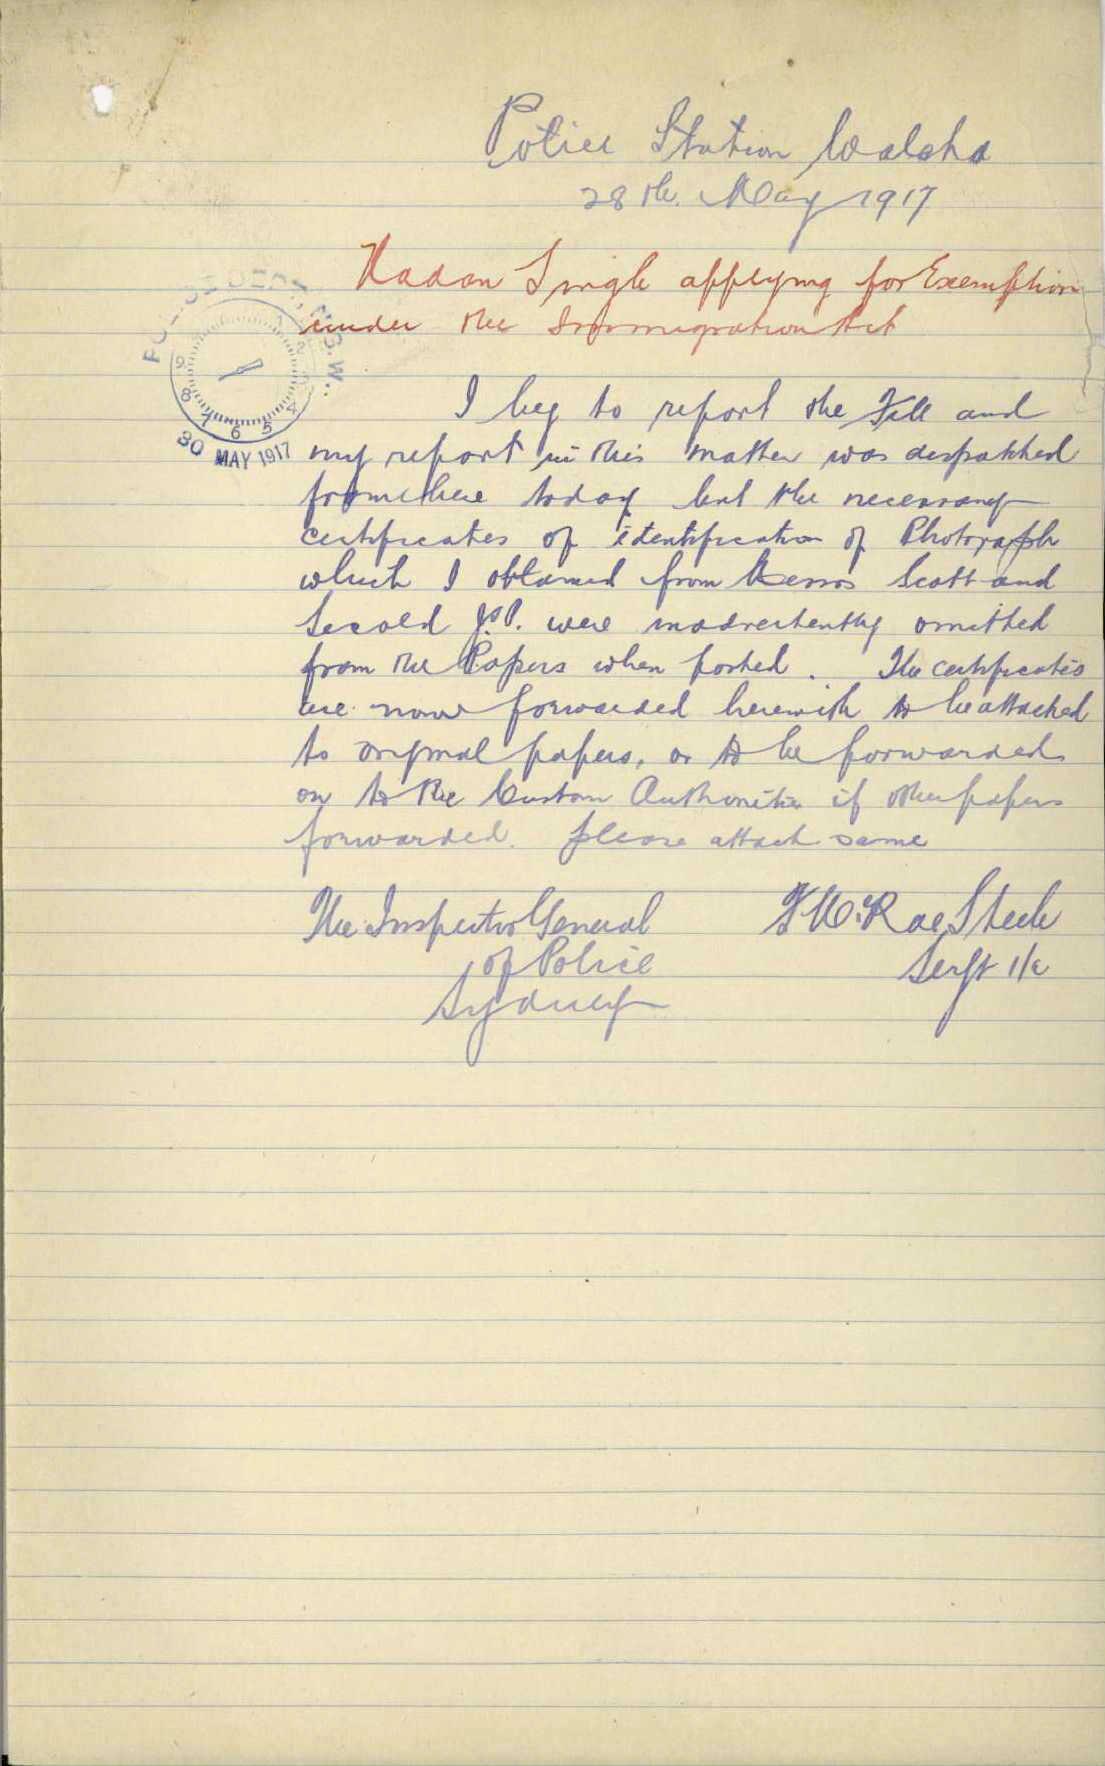 Police Station Walcha
28th. May 1917
Nadan Singh applying for Exemption
under the Immigration Act
POLICE DEPT. N.S.W.
1 2 3 4 5 6 7 8 9
30 MAY 1917
I beg to report the File and
my report in this matter was despatched
from here today but the necessary
certificates of identification of Photograph
which I obtained from Messrs Scott and
Secold J.P. were inadvertently omitted
from the Papers when posted. The certificates
are now forwarded herewith to be attached
to original papers, or to be forwarded
on to the Custom Authorities if other papers
forwarded. please attach same
The Inspector General
of Police
Sydney
McRae Steele
Sergt 1/c